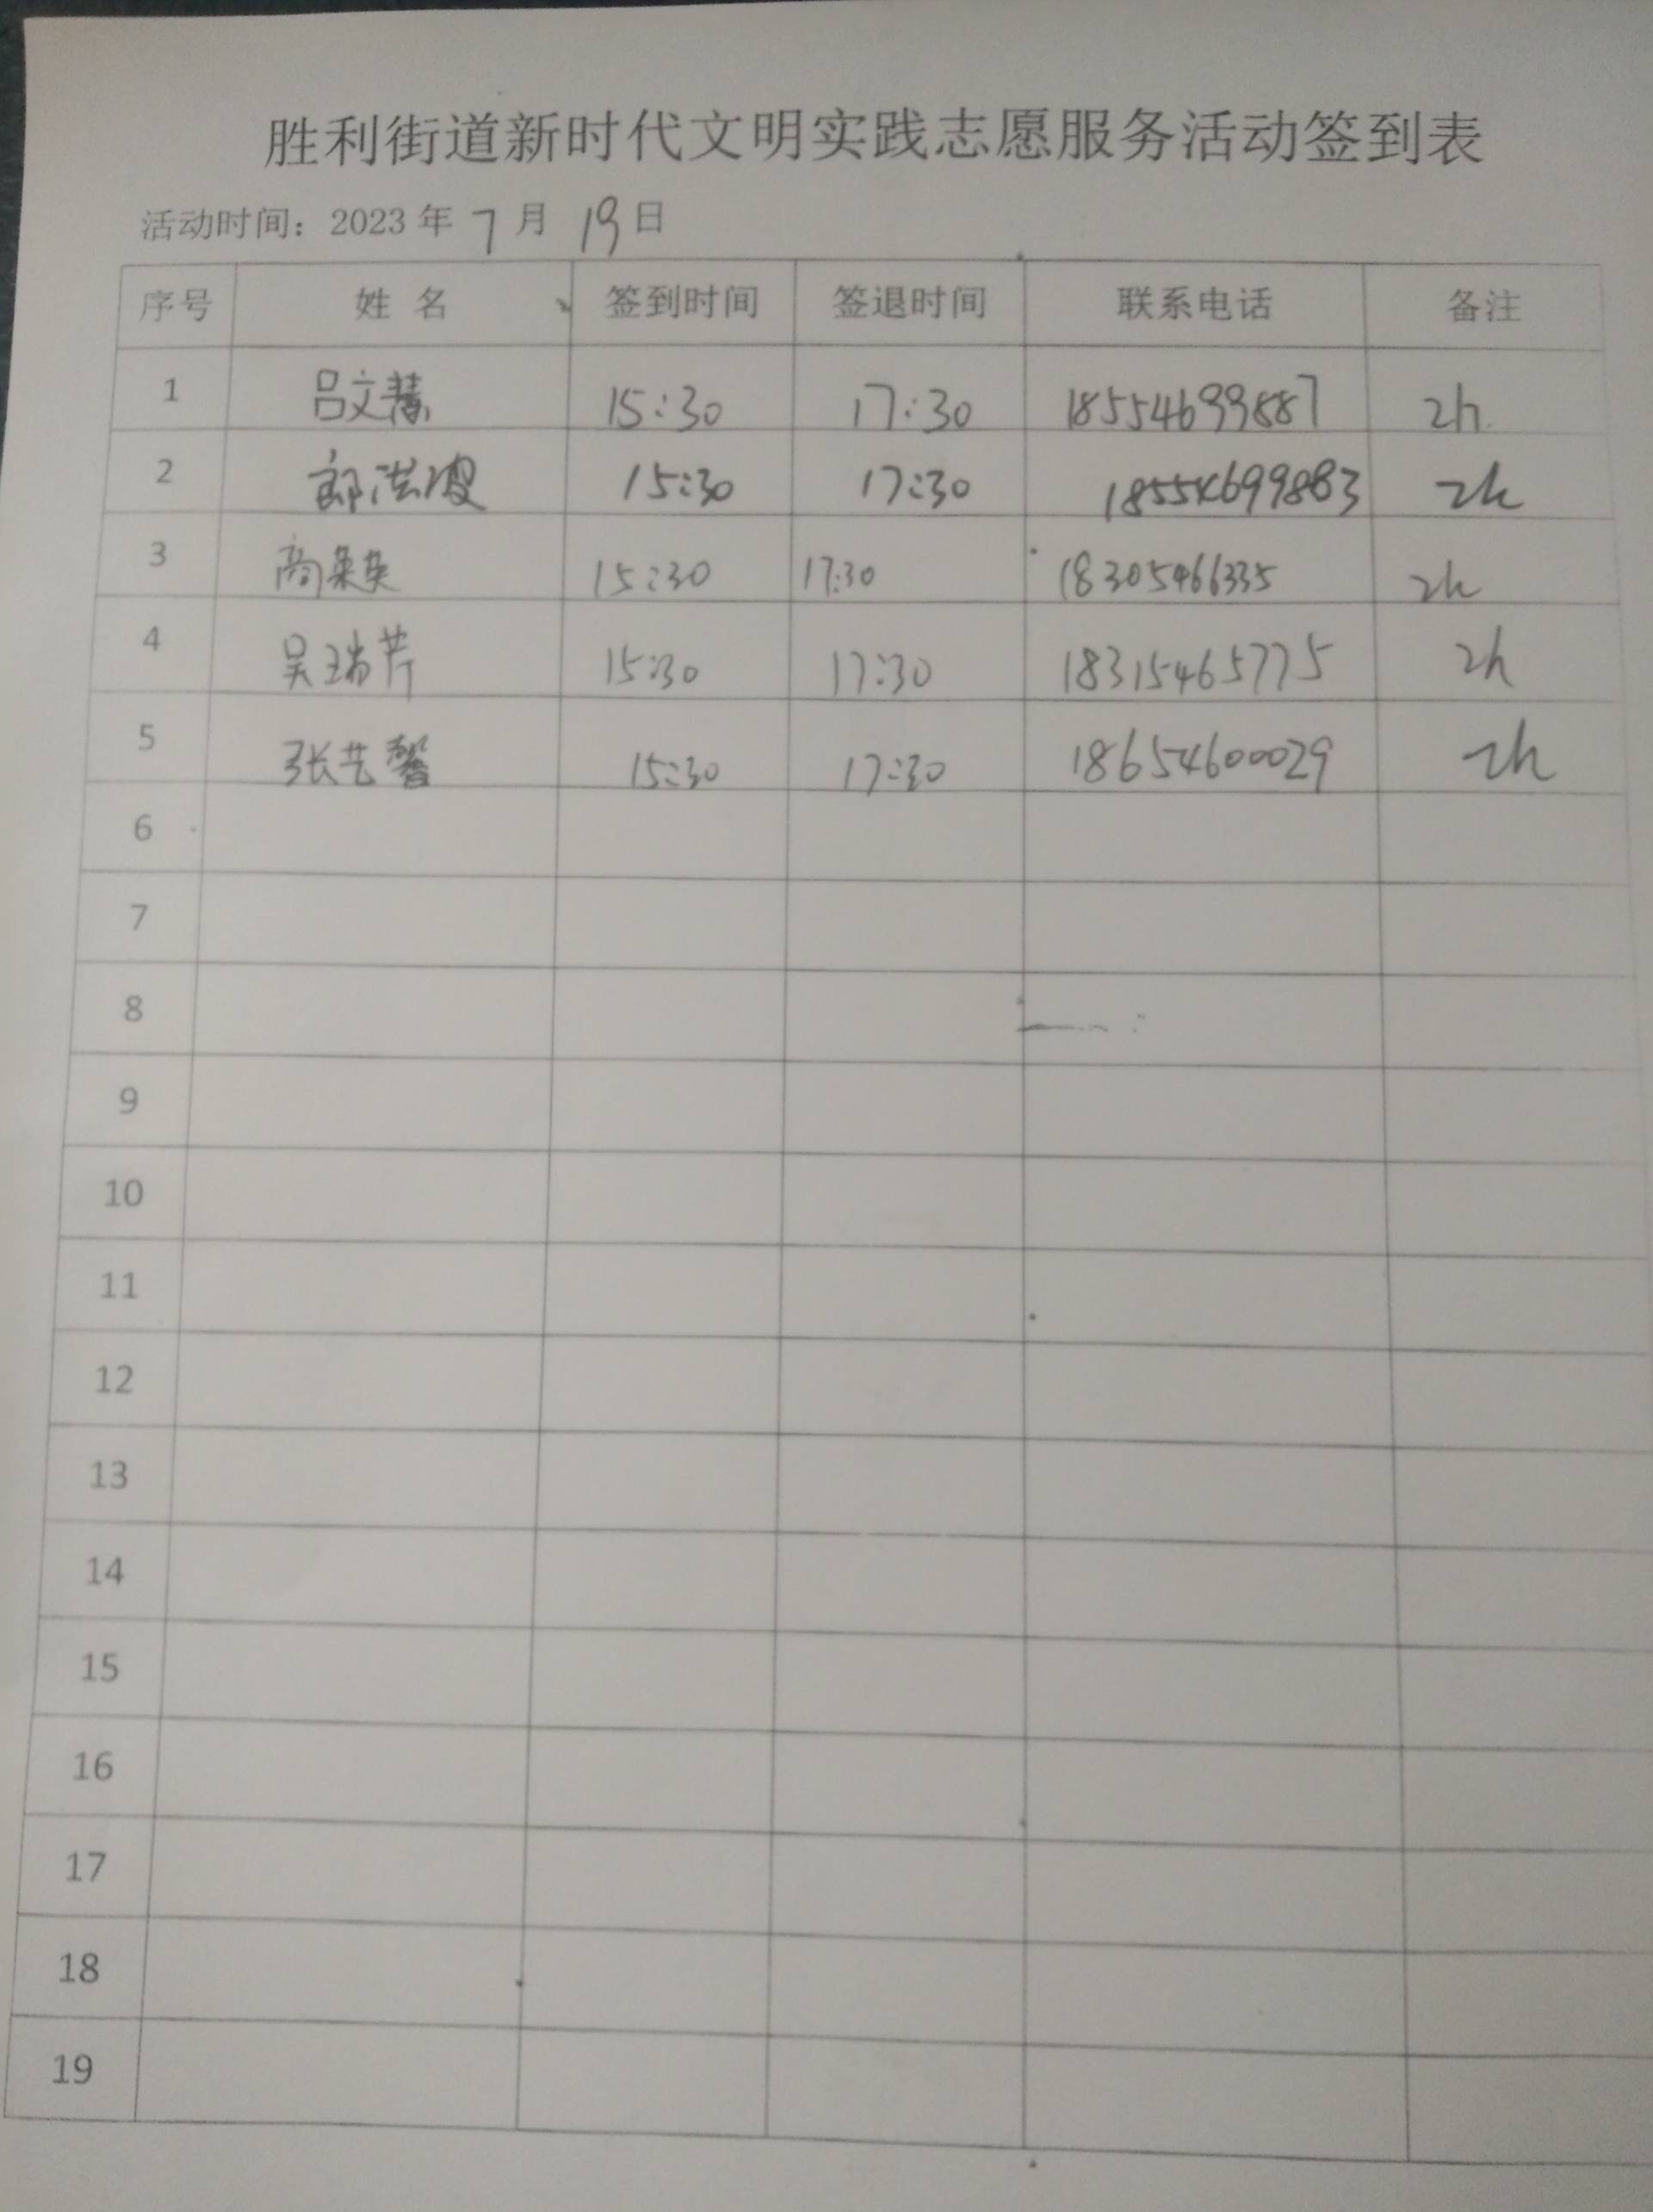 胜利街道新时代文明实践志愿服务活动签到表
活动时间：2023 年 7 月 19 日
序号 姓 名 签到时间 签退时间 联系电话 备注
1 吕文慧 15:30 17:30 18554699887 2h
2 郎洪波 15:30 17:30 18554699883 2h
3 15:30 17:30 18305466335 2h
4 吴瑞芹 15:30 17:30 18315465775 2h
5 张艺馨 15:30 17:30 18654600029 2h
6
7
8
9
10
11
12
13
14
15
16
17
18
19